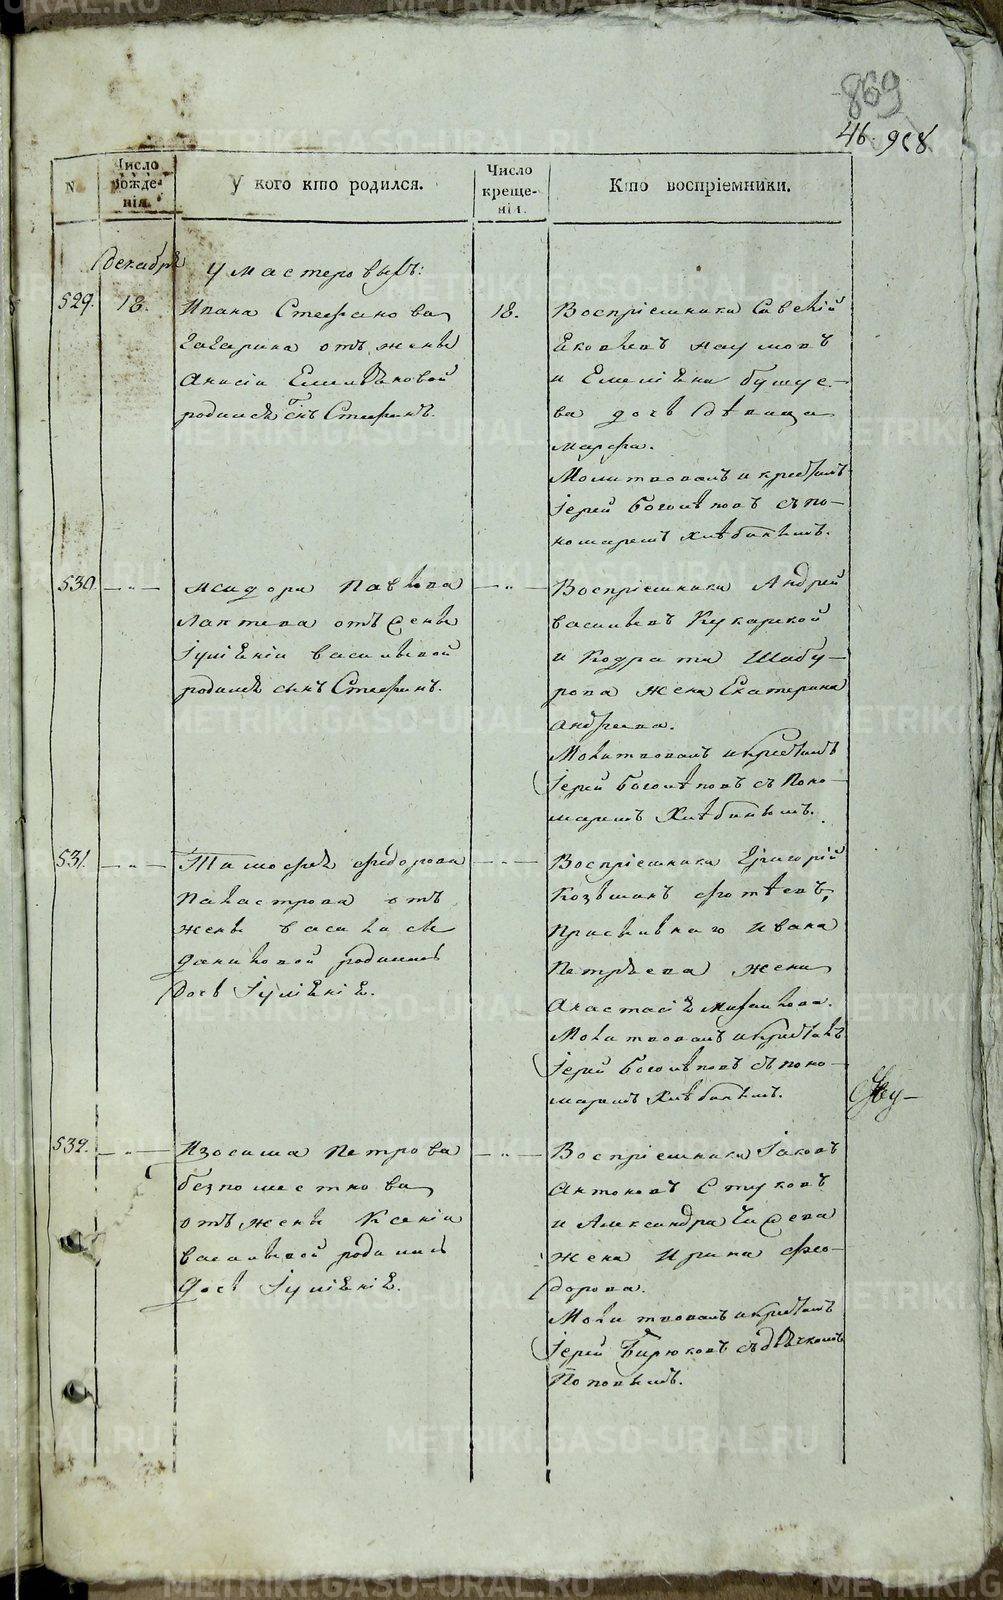 869
46. 968
N
Число рожденія.
У кого кто родился.
Число крещенія.
Кто воспріемники.
Декабря
У мастеровыхъ:
529.
18.
Ивана Стефанова
Гагарина отъ жены
Анисіи Емельяновой
родился сынъ Стефанъ.
18.
Воспріемники Савелій
Яковлевъ Наумовъ
и Емеліана Бушуе-
ва дочь дѣвица
Марфа.
Молитвовалъ и крестилъ
Іерей Боголѣповъ съ по-
номаремъ Хлѣбинымъ.
530.
— „ —
Исидора Павлова
Лаптева отъ жены
Іуліяніи Васильевой
родился сынъ Стефанъ.
— „ —
Воспріемники Андрей
Васильевъ Кукарской
и Кодрата Шабу-
рова жена Екатерина
Андреева.
Молитвовалъ и крестилъ
Іерей Боголѣповъ съ Поно-
маремъ Хлѣбинымъ.
531.
— „ —
Тимофея Федорова
Паластрова отъ
жены Василисы
Даниловой родилась
дочь Іуліянія.
— „ —
Воспріемники Григорій
Козьминъ Фотѣевъ,
Присыльнаго Ивана
Петрова жена
Анастасія Михайлова.
Молитвовалъ и крестилъ
Іерей Боголѣповъ съ поно-
маремъ Хлѣбинымъ.
532.
— „ —
Изосима Петрова
Безпоместнова
отъ жены Ксеніи
Васильевой родилась
дочь Іуліянія.
— „ —
Воспріемники Іаковъ
Антоновъ Стуковъ
и Александра
жена Ирина Фео-
дорова.
Молитвовалъ и крестилъ
Іерей Бирюковъ съ дьячкомъ
Поповымъ.
METRIKI.GASO-URAL.RU